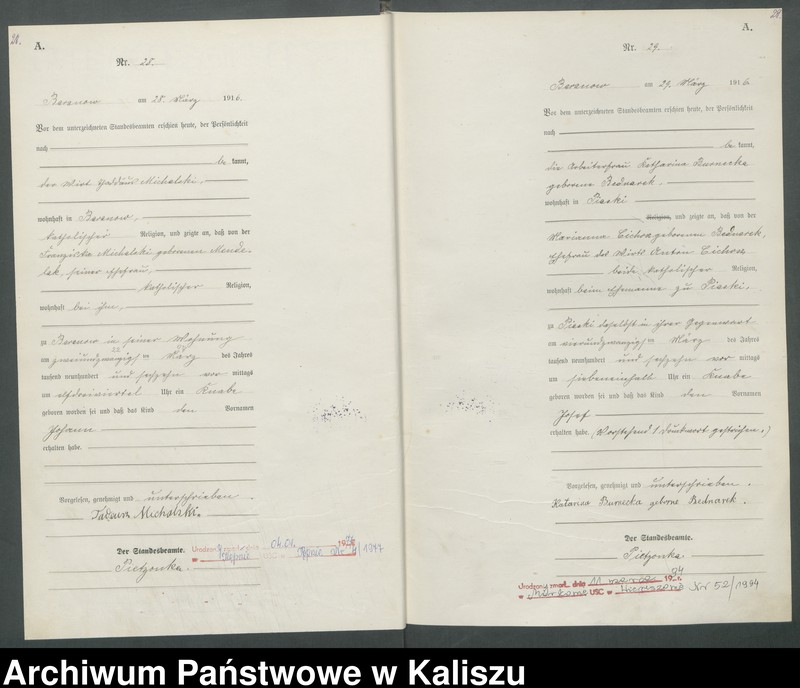 28.
A.
Nr. 28.
Baranow am 28. März 1916.
Vor dem unterzeichneten Standesbeamten erschien heute, der Persönlichkeit
nach
bekannt,
der Wirt Thaddäus Michalski,
wohnhaft in Baranow,
katholischer Religion, und zeigte an, daß von der
Franziska Michalski geborenen Mende-
lak, seiner Ehefrau,
katholischer Religion,
wohnhaft bei ihm,
zu Baranow in seiner Wohnung
am zweiundzwanzigsten März des Jahres
tausend neunhundert und sechzehn vormittags
um elfdreiviertel Uhr ein Knabe
geboren worden sei und daß das Kind den Vornamen
Johann
erhalten habe.
Vorgelesen, genehmigt und unterschrieben.
Michalski.
Der Standesbeamte.
Pietzonka
04.01. 19
Nr /1947
28.
A.
Nr. 29.
Baranow am 29. März 1916
Vor dem unterzeichneten Standesbeamten erschien heute, der Persönlichkeit
nach
bekannt,
die Arbeiterfrau Katharina Burnecka
geborene Bednarek,
wohnhaft in Piaski
Religion, und zeigte an, daß von der
Marianna Cichosz geborenen Bednarek,
Ehefrau des Wirts Anton Cichosz
beide katholischer Religion,
wohnhaft beim Ehemanne zu Piaski,
zu Piaski daselbst in ihrer Gegenwart
am vierundzwanzigsten März des Jahres
tausend neunhundert und sechzehn vormittags
um siebeneinhalb Uhr ein Knabe
geboren worden sei und daß das Kind den Vornamen
Josef
erhalten habe. (Vorstehend 1 Druckwort gestrichen.)
Vorgelesen, genehmigt und unterschrieben.
Katarina Burnecka geborne Bednarek.
Der Standesbeamte.
Pietzonka
Urodzony zmarł dnia 11 marca 1994 r.
w USC w Nr 52/1994
Archiwum Państwowe w Kaliszu